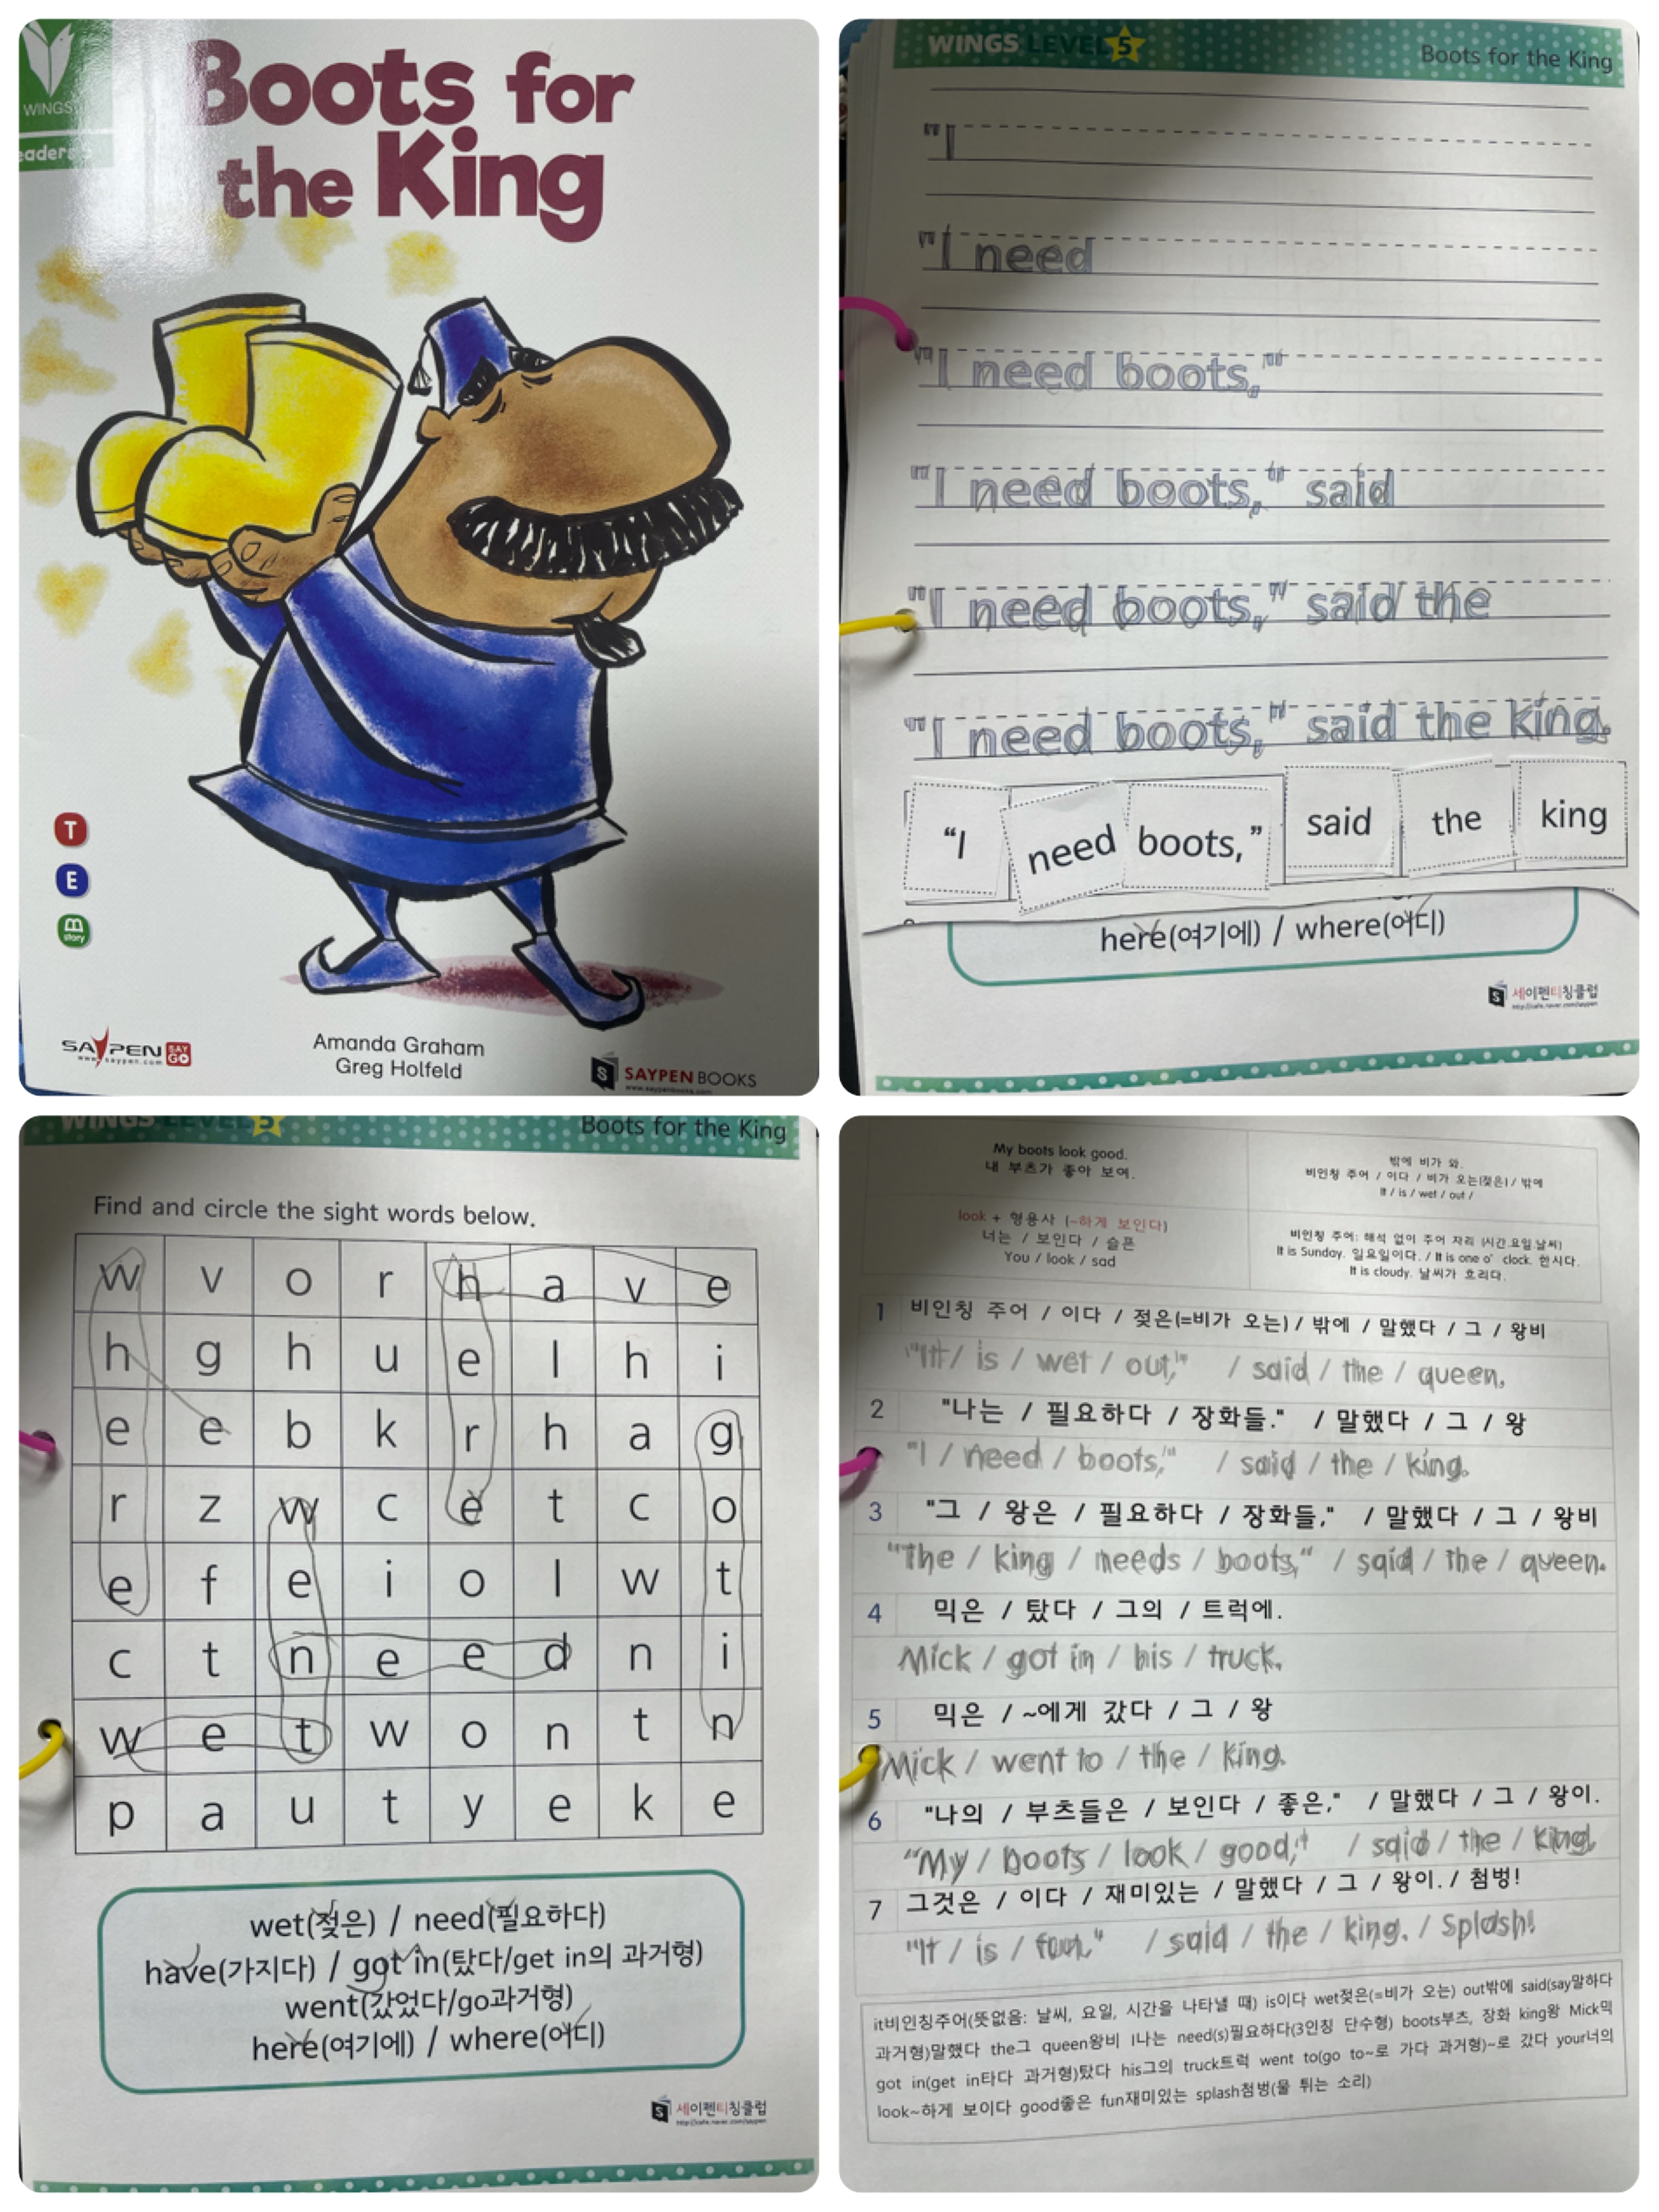 WINGS
eaders 5
Boots for
the King
T
E
story
SAYPEN
www.saypen.com
SAY
GO
Amanda Graham
Greg Holfeld
S
SAYPEN BOOKS
www.saypenbooks.com
WINGS LEVEL 5
Boots for the King
"I
"I need
"I need boots,"
"I need boots," said
"I need boots," said the
"I need boots," said the king.
“I need boots,” said the king
here(여기에) / where(어디)
S 세이펜티칭클럽
http://cafe.naver.com/saypen
WINGS LEVEL 5
Boots for the King
Find and circle the sight words below.
w v o r h a v e
h g h u e l h i
e e b k r h a g
r z w c e t c o
e f e i o l w t
c t n e e d n i
w e t w o n t n
p a u t y e k e
wet(젖은) / need(필요하다)
have(가지다) / got in(탔다/get in의 과거형)
went(갔었다/go과거형)
here(여기에) / where(어디)
S 세이펜티칭클럽
http://cafe.naver.com/saypen
My boots look good.
내 부츠가 좋아 보여.
밖에 비가 와.
비인칭 주어 / 이다 / 비가 오는(젖은) / 밖에
It / is / wet / out /
look + 형용사 (~하게 보인다)
너는 / 보인다 / 슬픈
You / look / sad
비인칭 주어: 해석 없이 주어 자리 (시간,요일,날씨)
It is Sunday. 일요일이다. / It is one o' clock. 한시다.
It is cloudy. 날씨가 흐리다.
1 비인칭 주어 / 이다 / 젖은(=비가 오는) / 밖에 / 말했다 / 그 / 왕비
"It / is / wet / out," / said / the / queen.
2 "나는 / 필요하다 / 장화들." / 말했다 / 그 / 왕
"I / need / boots," / said / the / king.
3 "그 / 왕은 / 필요하다 / 장화들," / 말했다 / 그 / 왕비
"The / king / needs / boots," / said / the / queen.
4 믹은 / 탔다 / 그의 / 트럭에.
Mick / got in / his / truck.
5 믹은 / ~에게 갔다 / 그 / 왕
Mick / went to / the / king.
6 "나의 / 부츠들은 / 보인다 / 좋은," / 말했다 / 그 / 왕이.
"My / boots / look / good," / said / the / king.
7 그것은 / 이다 / 재미있는 / 말했다 / 그 / 왕이. / 첨벙!
"It / is / fun," / said / the / king. / Splash!
it비인칭주어(뜻없음: 날씨, 요일, 시간을 나타낼 때) is이다 wet젖은(=비가 오는) out밖에 said(say말하다
과거형)말했다 the그 queen왕비 I나는 need(s)필요하다(3인칭 단수형) boots부츠, 장화 king왕 Mick믹
got in(get in타다 과거형)탔다 his그의 truck트럭 went to(go to~로 가다 과거형)~로 갔다 your너의
look~하게 보이다 good좋은 fun재미있는 splash첨벙(물 튀는 소리)